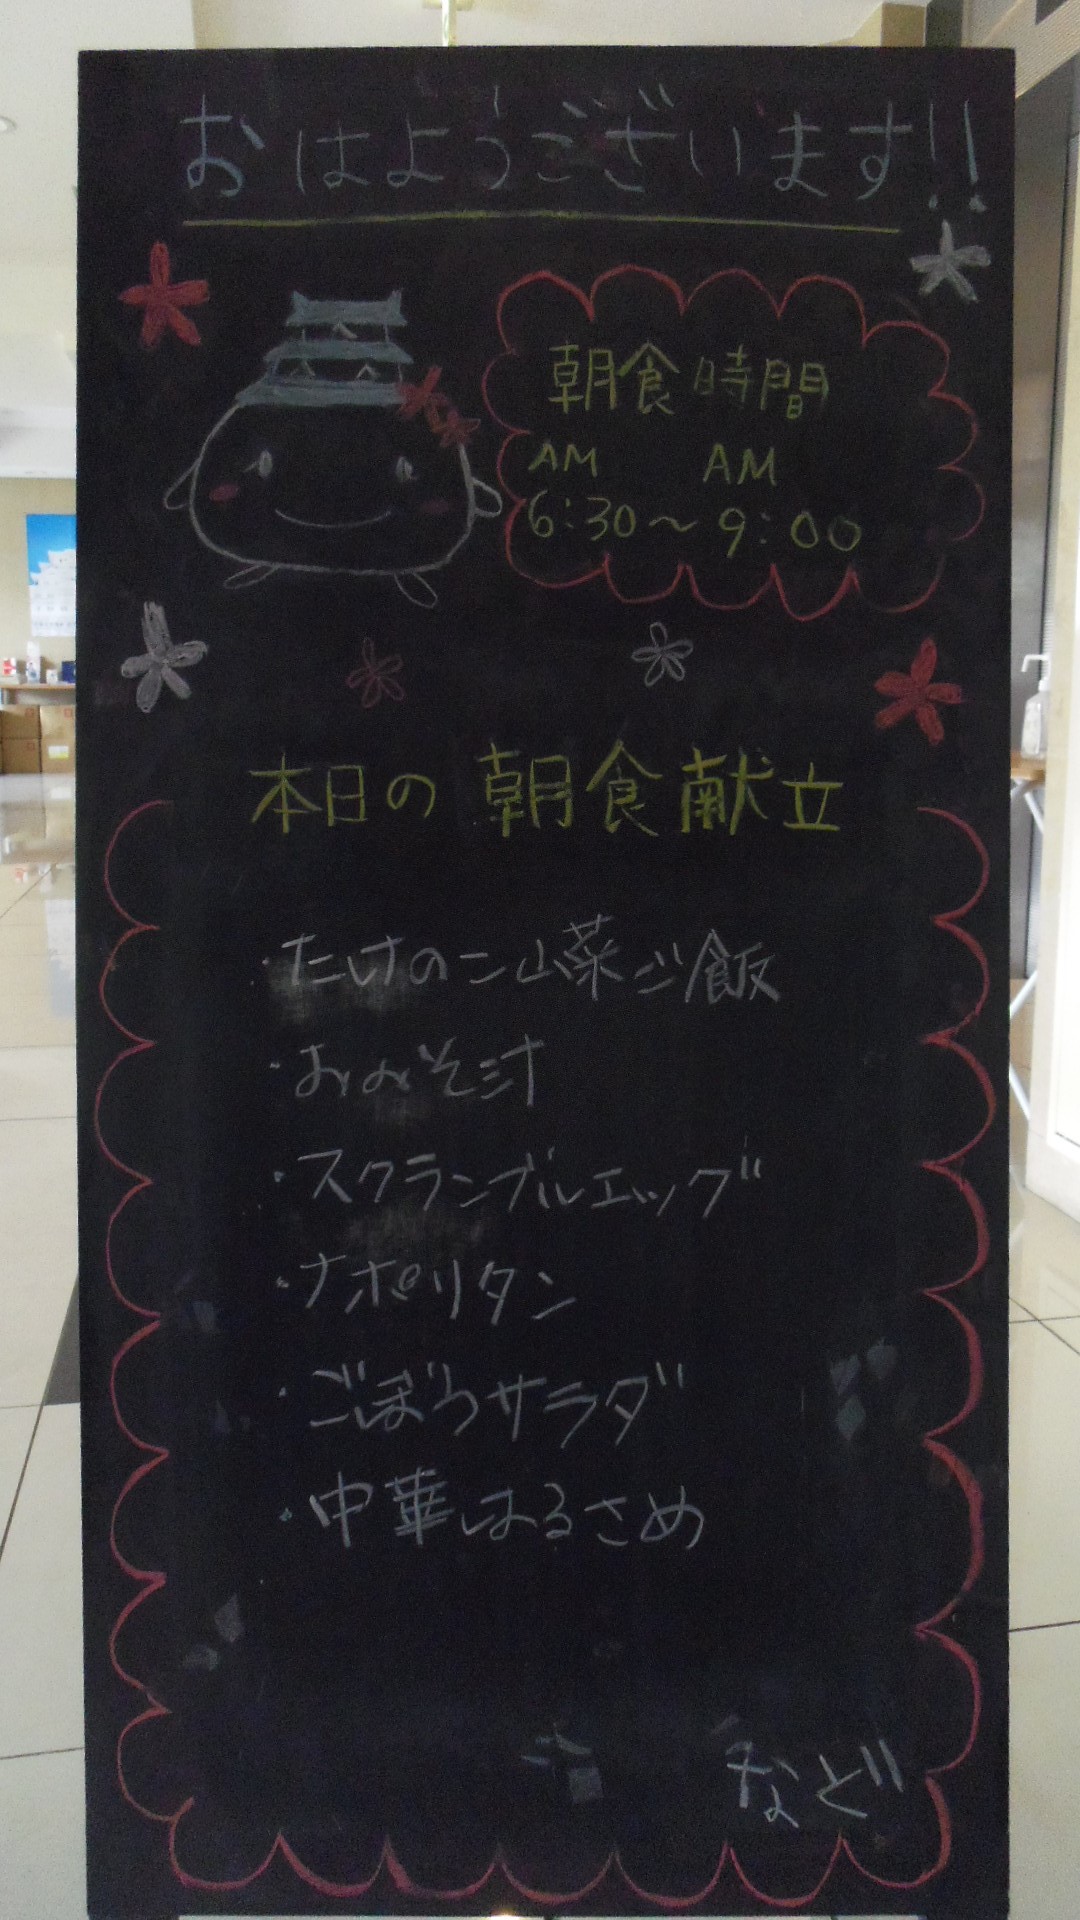 おはようございます!!
朝食時間
AM AM
6:30～9:00
本日の朝食献立
・たけのこ山菜ご飯
・おみそ汁
・スクランブルエッグ
・ナポリタン
・ごぼうサラダ
・中華はるさめ
など